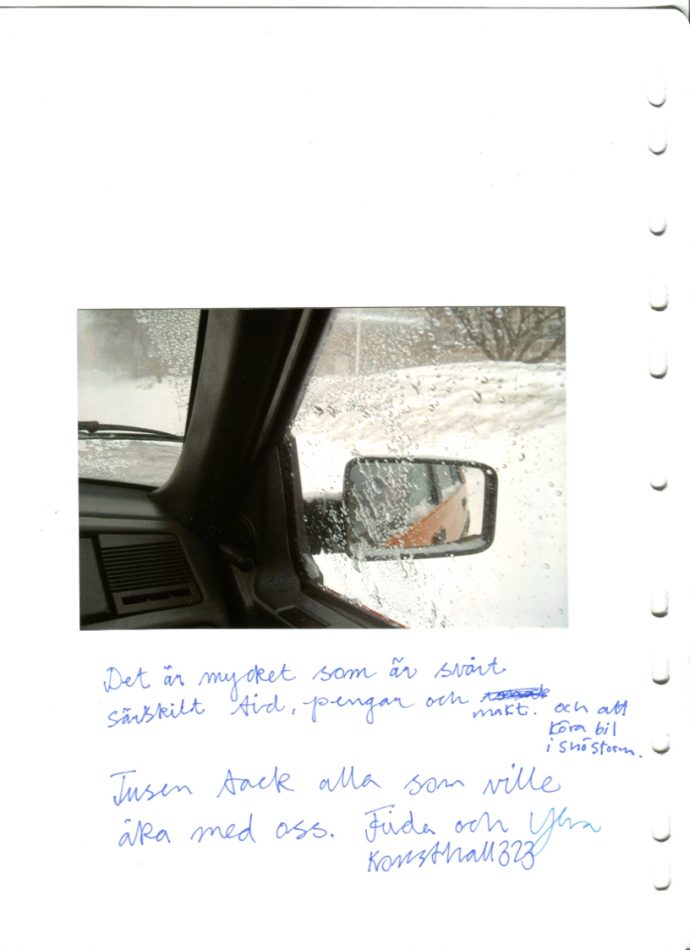 Det är mycket som är svårt
särskilt tid, pengar och
makt. och att
köra bil
i snöstorm.
Tusen tack alla som ville
åka med oss. Frida och Ylva
Konsthall323